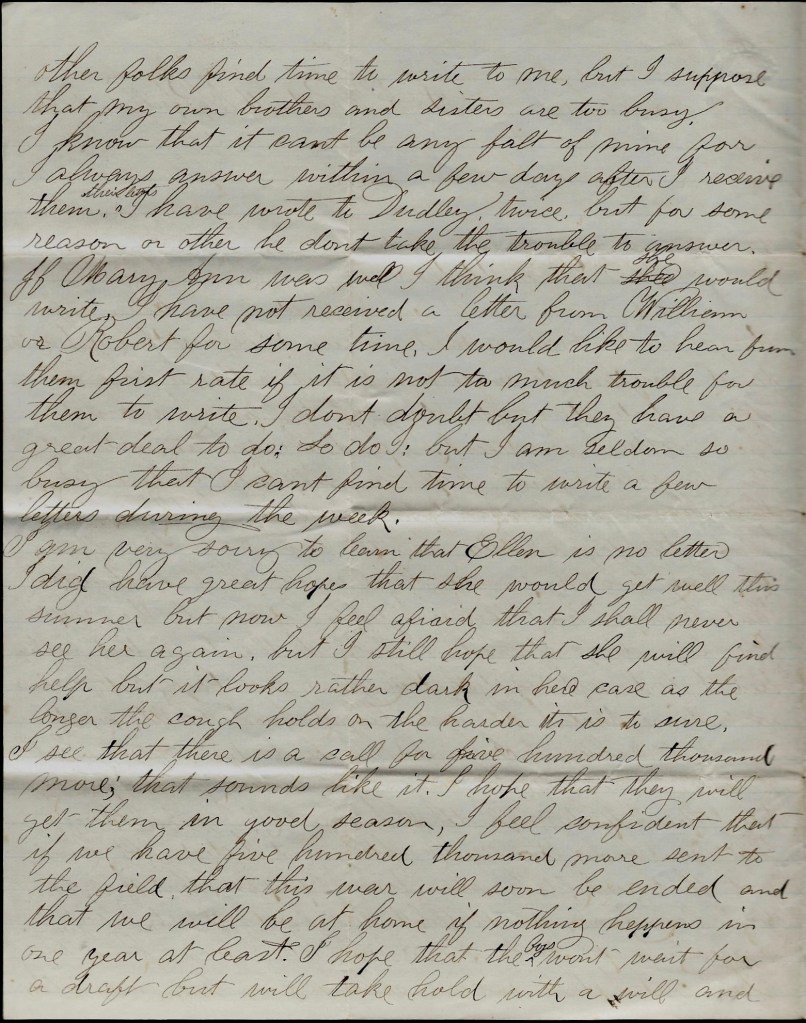 other folks find time to write to me, but I suppose
that my own brothers and sisters are too busy.
I know that it cant be any falt of mine for
I always answer within a few days after I receive
them. I have wrote to Dudley, twice, but for some
reason or other he dont take the trouble to answer.
If Mary Ann was well I think that she would
write, I have not received a letter from William
or Robert for some time, I would like to hear from
them first rate if it is not to much trouble for
them to write, I dont doubt but they have a
great deal to do: So do I: but I am seldom so
busy that I cant find time to write a few
letters during the week.
I am very sorry to learn that Ellen is no better
I did have great hopes that she would get well this
summer but now I feel afraid that I shall never
see her again, but I still hope that she will find
help but it looks rather dark in her case as the
longer the cough holds on the harder it is to cure.
I see that there is a call for five hundred thousand
more; that sounds like it. I hope that they will
get them in good season, I feel confident that
if we have five hundred thousand more sent to
the field, that this war will soon be ended and
that we will be at home if nothing happens in
one year at least. I hope that the boys wont wait for
a draft but will take hold with a will and